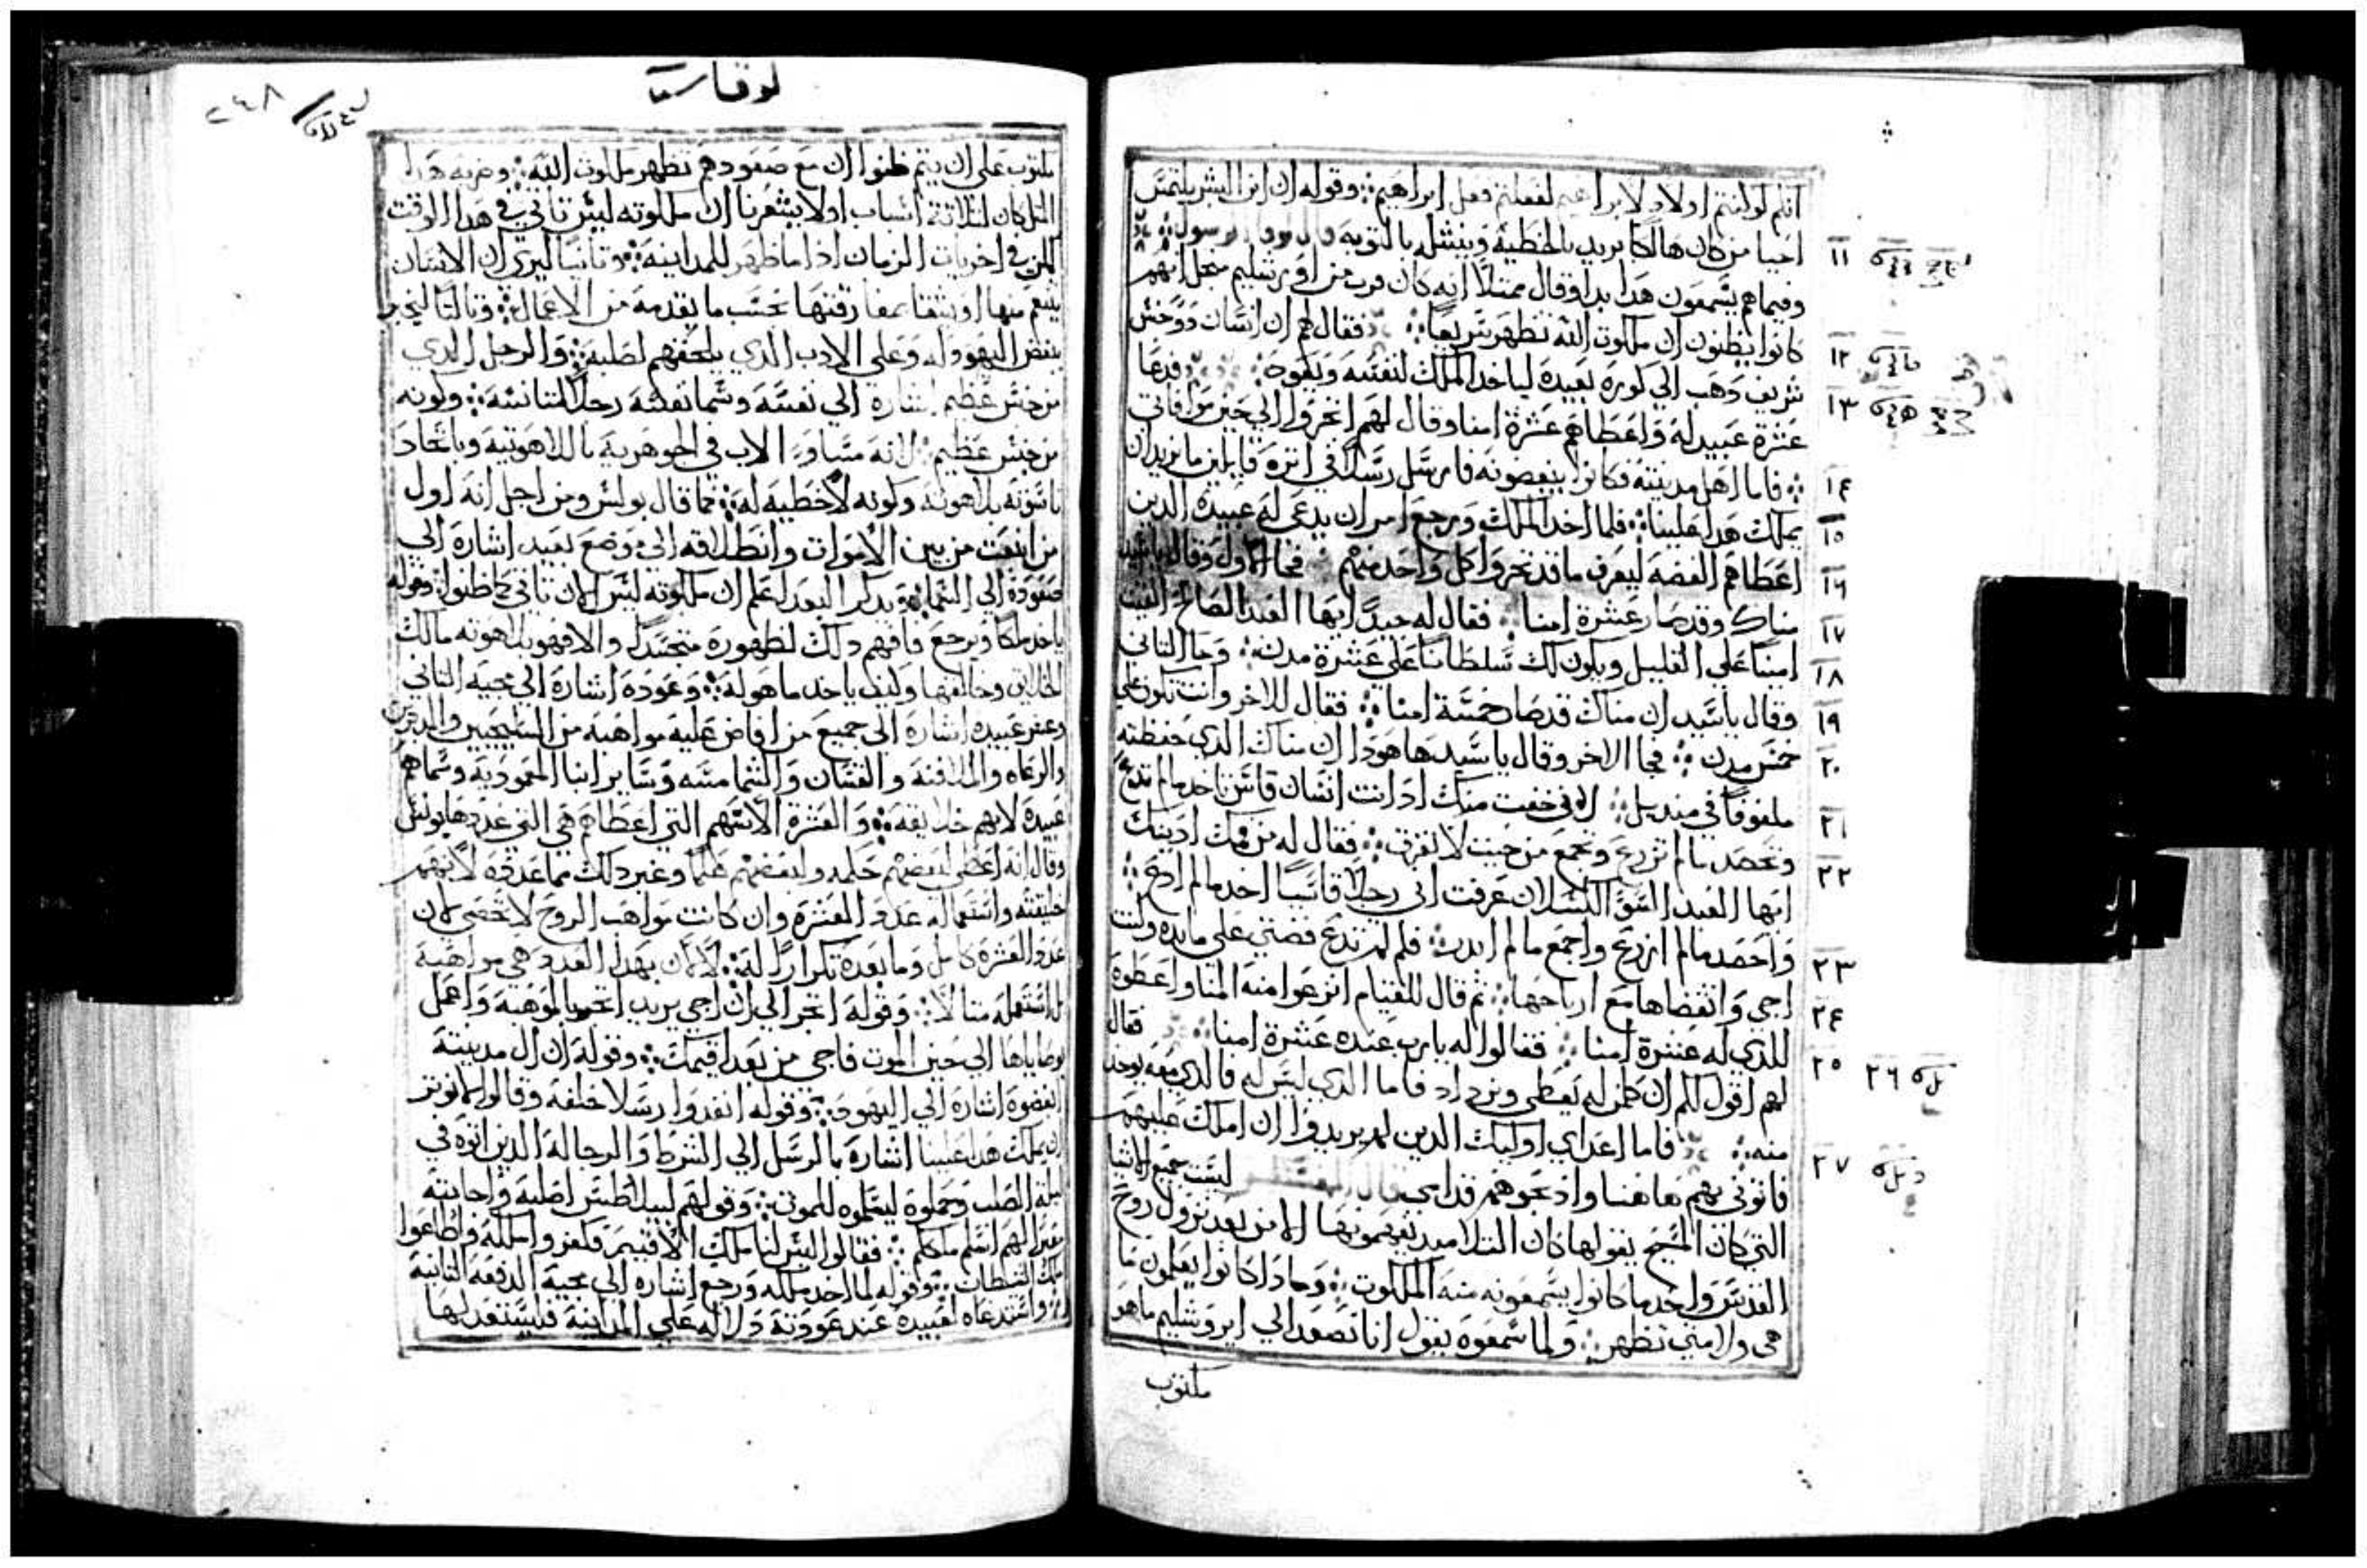 انكم لو انتم اولاد لابراهيم لفعلتم فعل ابراهيم وقوله ان ابن البشر يلتمس
احيا من كان هالكا يريد بالخطية وينشله بالتوبه قال لوقا الرسول
١١ وفيماهم يسمعون هذا بدا وقال ممثلا انه كان قرب من اورشليم منجل انهم
كانوا يظنون ان ملكوت الله تظهر سريعا فقال لهم ان انسان دو جنس
١٢ شريف دهب الي كورة بعيدة لياخد الملك لنفسه ويعود فدعا
١٣ عشرة عبيد له واعطاهم عشرة امنا وقال لهم اتجروا الي حين موافاتي
١٤ فاما اهل مدينته فكانوا يبغضونه فارسل رسلا في اتره قايلين ما نريد ان
١٥ يملك هدا علينا فلما اخد الملك ورجع امر ان يدعي له عبيده الدين
١٦ اعطاهم الفضه ليعرف ما قد تجروا كل واحد منهم فجا الاول وقال يا سيد
١٧ مناك وقد صار عشرة امنا فقال له جيدا ايها العبد الصالح الفيت
١٨ امينا علي القليل ويكون لك سلطانا علي عشرة مدن وجا التاني
١٩ وقال يا سيد ان مناك قد صار خمسة امنا فقال للاخر وانت تكون علي
٢٠ خمس مدن فجا الاخر وقال يا سيد ها هودا ان مناك الدي حفظته
٢١ ملفوفا في منديل لاني خفت منك اد انت انسان قاس تاخد ما لم تدع
٢٢ وتحصد ما لم تزرع وتجمع من حيت لا تفرق فقال له من فمك ادينك
ايها العبد السو الكسلان عرفت اني رجلا قاسيا اخد ما لم ادع
٢٣ واحصد ما لم ازرع واجمع ما لم ابدر فلم لم تدع فضتي علي مايده وكنت
٢٤ اجي واتقضاها مع ارباحها تم قال للقيام انزعوا منه المنا واعطوه
٢٥ للدي له عشرة امنا فقالوا له يا رب عنده عشرة امنا فقال
٢٦ لهم اقول لكم ان كلمن له يعطي ويزداد فاما الدي ليس له فالدي معه يوخد
٢٧ منه فاما اعداي اوليك الدين لم يريدوا ان املك عليهم
فاتوني بهم هاهنا وادبحوهم قدامي قال المفسر ليست جميع الاشيا
التي كان المسيح يقولها كان التلاميد يفهمونها الا من بعد نزول روح
القدس واحد ما كانوا يسمعونه منه الملكوت وما دا كانوا يعلمون ما
هي ولا متي تظهر ولما سمعوه يقول انا نصعد الي ايروشليم ما هو
مكتوب
لوقا
٢٤٨
مكتوب علي ان يتم ظنوا ان مع صعودهم تظهر ملكوت الله وضربه هدا
المتل كان لتلاتة اسباب اولا يشعرنا ان ملكوته ليس تاتي في هدا الوقت
لكن في اخريات الزمان ادا ما ظهر للمداينه وتانيا ليري ان الانسان
ينعم منها او يشقا بمفارقتها بحسب ما يقدمه من الاعمال وتالتا ليخبر
ببغض اليهود له وعلي الادب الدي يلحقهم لصلبه والرجل الدي
من جنس عظيم اشارة الي نفسه وسما نفسه رجلا لتانسه وكونه
من جنس عظيم لانه مساوي الاب في الجوهرية باللاهوتيه وباتحاد
ناسوته بلاهوته وكونه لا خطيه له كما قال بولس ومن اجل انه اول
من انبعت من بين الاموات وانطلاقه الي موضع بعيد اشارة الي
صعوده الي السما يدكر البعد ليعلم ان ملكوته ليس الان تاتي كما ظنوا وقوله
ياخد ملكا ويرجع فافهم دلك لظهوره متجسدا والا فهو بلاهوته مالك
الخلايق وخالقها وكيف ياخد ما هو له وعوده اشارة الي مجيه التاني
وعشر عبيده اشارة الي جميع من افاض عليه مواهبه من السليحيين والمدبرين
والرعاه والملافنه والقسان والشمامسه وساير ابنا المعموديه وسماهم
عبيده لانهم خلايقه والعشرة الاسهم التي اعطاهم هي التي عددها بولس
وقال انه اعطي لبعضهم حكمه ولبعضهم علما وغير دلك مما عدده لانهم
خليقته واستعماله عدد العشرة وان كانت مواهب الروح لا تحصي لان
عدد العشرة كامل وما بعده تكرارا له لا لان بهدا العدد هي مواهبه
بل استعمله متالا وقوله اتجر الي ان اجي يريد اتجر بالموهبه واعمل
بوصاياها الي حين الموت فاجي من بعد اقيمك وقوله ان ال مدينته
ابغضوه اشارة الي اليهود وقوله انفدوا رسلا خلفه وقالوا لا نوتر
ان يملك هدا علينا اشارة بالرسل الي الشرط والرجاله الدين اتوه في
ليلة الصلب وحملوه ليسلموه للموت وقولهم لبيلاطس اصلبه واجابته
فقالوا ليس لنا ملك الا قيصر فكفروا بملكه واطاعوا
ملك السلطان وقوله لما اخد ملكه ورجع اشارة الي مجيه الدفعه التانية
واستدعاه لعبيده عند عودته دلالة علي المداينة فليستعد لها